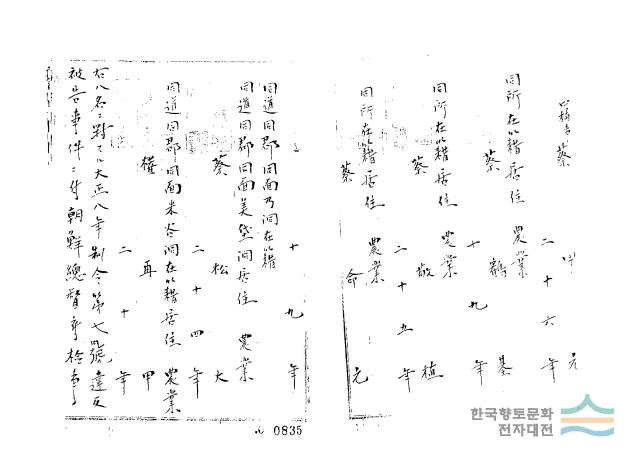 蔡 元
二十六年
同所在籍居住 農業
蔡 鶴 基
十九年
同所在籍居住 農業
蔡 敬 植
二十五年
同所在籍居住 農業
蔡 命 元
十九年
同道同郡同面乃洞在籍
同道同郡同面美垈洞居住 農業
蔡 松 大
二十四年
同道同郡同面米谷洞在籍居住 農業
權 再 甲
二十年
右八名ニ對スル大正八年制令第七號違反
被告事件ニ付朝鮮總督府檢事
0835
한국향토문화
전자대전